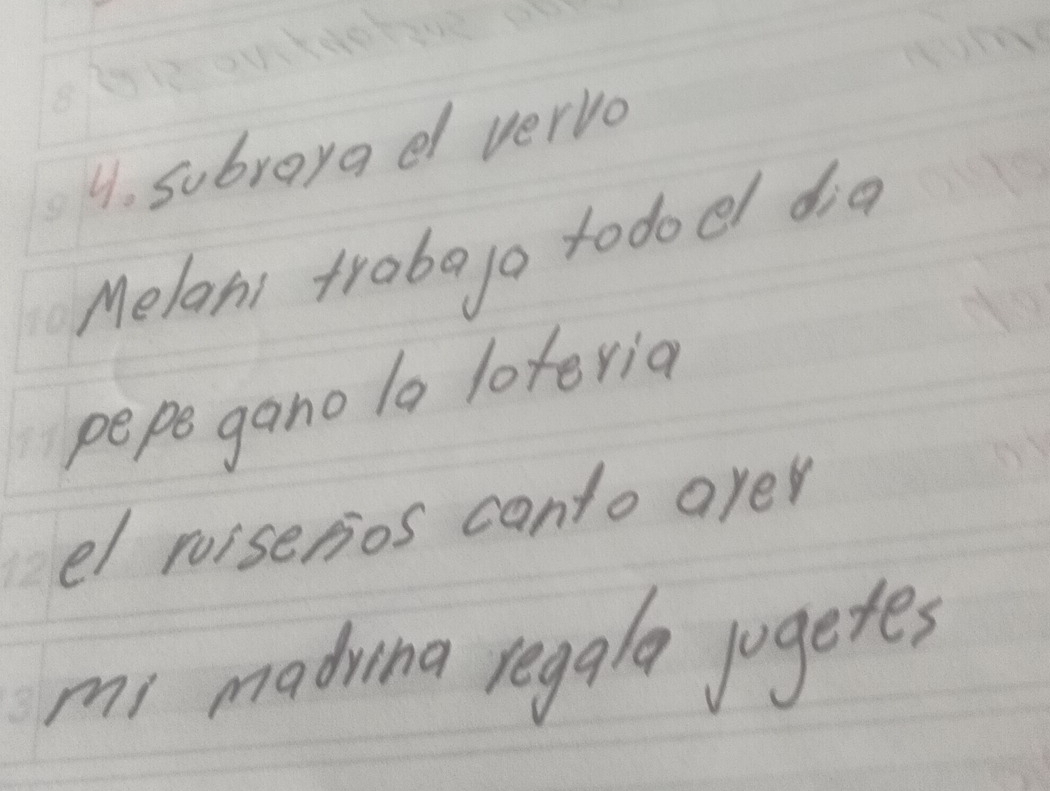 4. subraya el vervo
Melani trabaja todo el dia
pepe gano la loteria
el ruiseños canto ayer
mi madrina regala jugetes